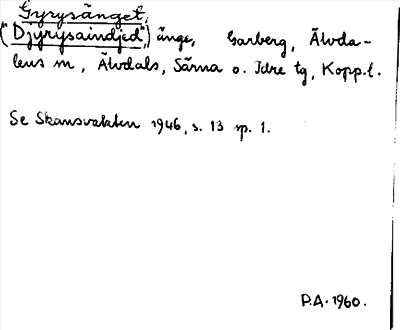 Gyrysänget,
("Djyrysaindjed",) änge, Garberg, Älvda-
lens m, Älvdals, Särna o. Idre tg, Kopp.l.
Se Skansvakten 1946, s. 13 sp. 1.
P.A. 1960.